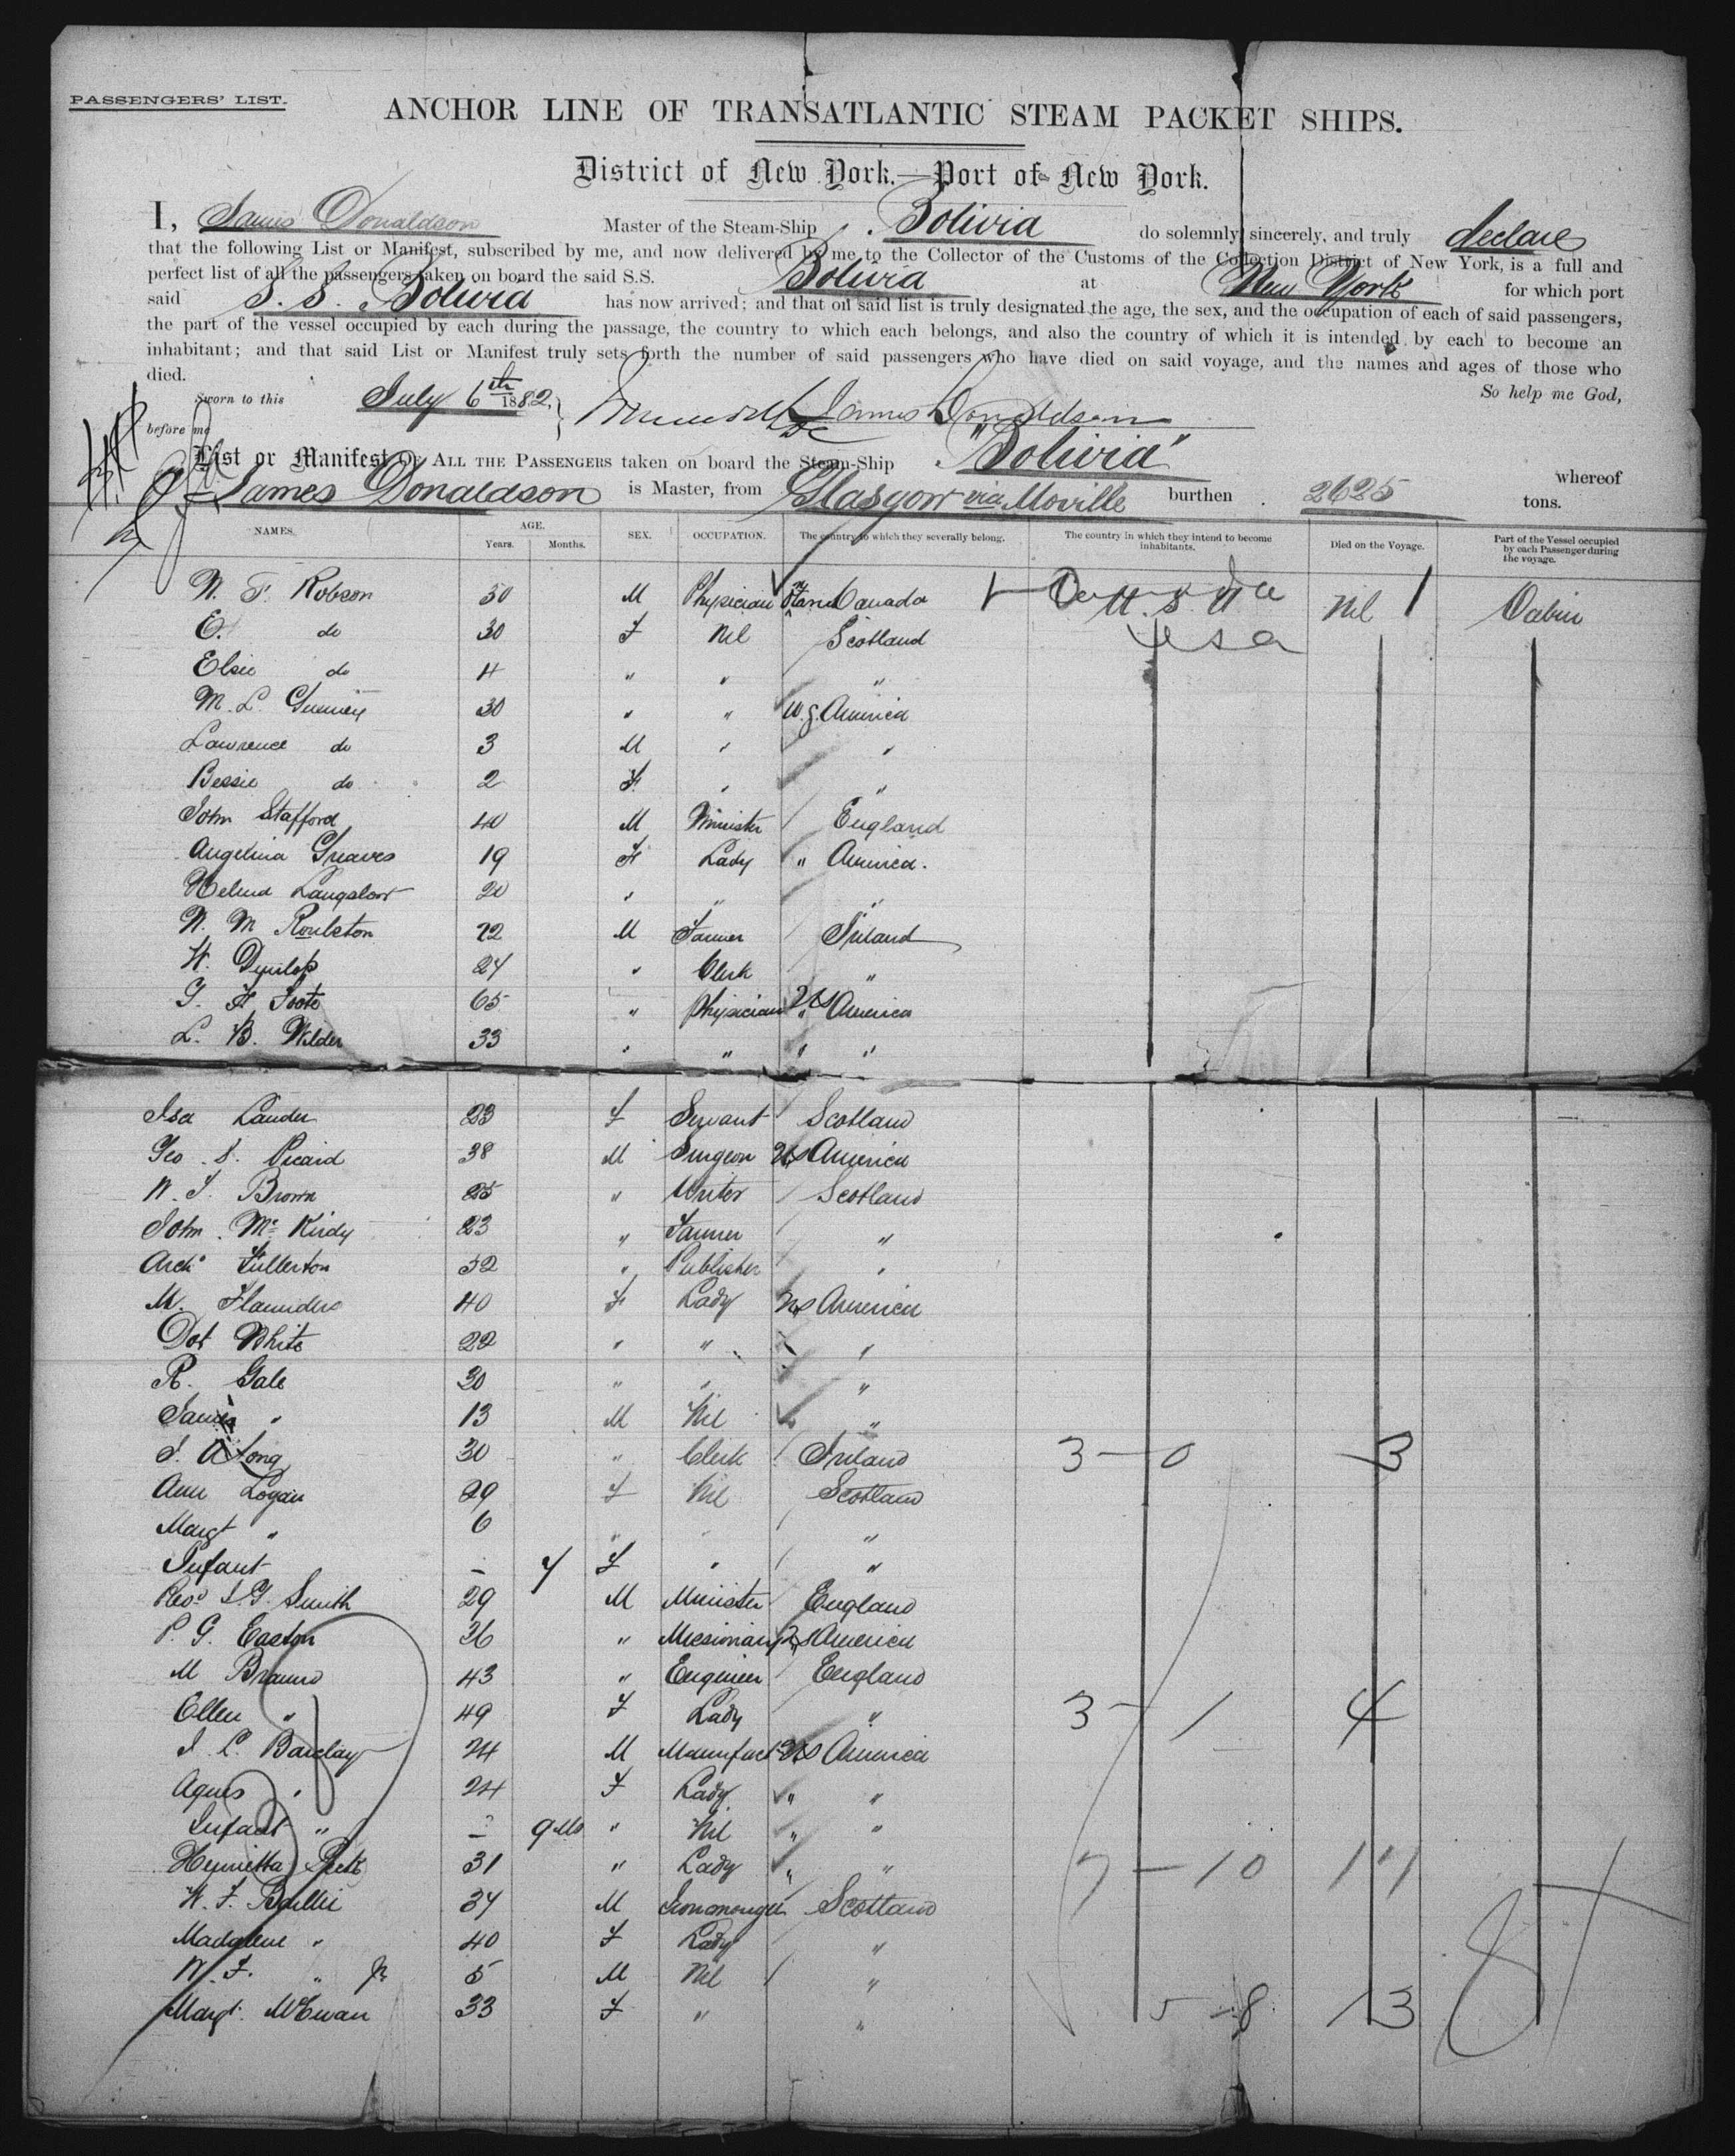 PASSENGERS' LIST.
ANCHOR LINE OF TRANSATLANTIC STEAM PACKET SHIPS.
District of New York.—Port of New York.
I, James Donaldson Master of the Steam-Ship Bolivia do solemnly, sincerely, and truly declare
that the following List or Manifest, subscribed by me, and now delivered by me to the Collector of the Customs of the Collection District of New York, is a full and
perfect list of all the passengers taken on board the said S.S. Bolivia at New York for which port
said S. S. Bolivia has now arrived; and that on said list is truly designated the age, the sex, and the occupation of each of said passengers,
the part of the vessel occupied by each during the passage, the country to which each belongs, and also the country of which it is intended by each to become an
inhabitant; and that said List or Manifest truly sets forth the number of said passengers who have died on said voyage, and the names and ages of those who
died.
So help me God,
Sworn to this July 6th 1882, James Donaldson
before me
List or Manifest OF ALL THE PASSENGERS taken on board the Steam-Ship "Bolivia" whereof
James Donaldson is Master, from Glasgow via Moville burthen 2625 tons.
NAMES. AGE. Years. Months. SEX. OCCUPATION. The country to which they severally belong. The country in which they intend to become inhabitants. Died on the Voyage. Part of the Vessel occupied by each Passenger during the voyage.
W. F. Robson 50 M Physician Canada U. S. Nil Cabin
E. do 30 F Nil Scotland usa
Elsie do 4 " " "
M. L. 30 " " America
Lawrence do 3 M " "
Bessie do 2 F " "
John Stafford 40 M Minister England
Angelina Greaves 19 F Lady " America.
Langslow 20 " " "
W. M Roulston 22 M Farmer Ireland
W. Dunlop 24 " Clerk "
G. H Foote 65 " Physician US America
L. B. Wilder 33 " " " "
Isa Lauder 23 F Servant Scotland
Geo. S. Picard 38 M Surgeon US America
W. F. Brown 25 " Writer Scotland
John McKirdy 23 " Farmer "
Archd Fullerton 52 " Publisher "
M. Flanders 40 F Lady US America
Dot White 22 " " "
R. Gale 30 " " "
James " 13 M Nil "
J. A Long 30 " Clerk Ireland 3 — 0 3
Ann Logan 29 F Nil Scotland
Margt " 6 " " "
Infant – 7 F " "
Revd J. G. Smith 29 M Minister England
P. G. Easton 36 " Missionary US America
M 43 " Engineer England
Ellen " 49 F Lady " 3 – 1 4
J. L. Barclay 24 M Manufact US America
Agnes " 24 F Lady " "
Infant " – 9 Mo " Nil " "
Henrietta 31 " Lady " " 7 – 10 17
W. F. Baillie 37 M Ironmonger Scotland
Madalene " 40 F Lady "
W. F. " Jr 5 M Nil "
Margt. McEwan 33 F " " 5 – 8 13